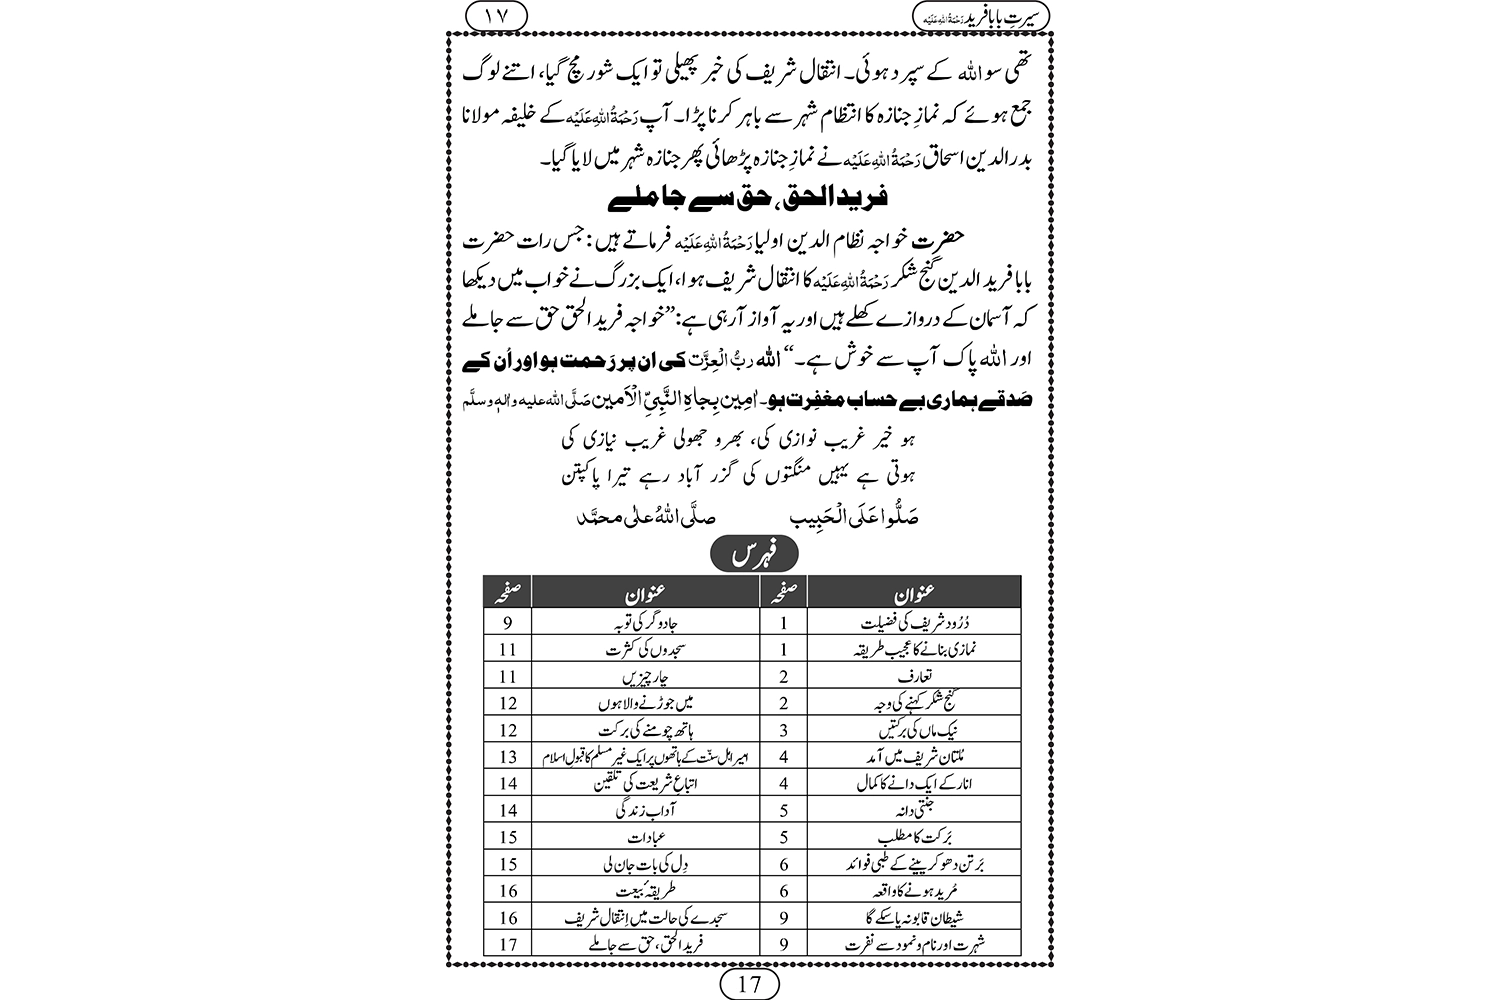 سیرتِ بابا فرید رَحْمَۃُ اللہِ عَلَیْہ
۱۷
تھی سو اللہ کے سپرد ہوئی۔ انتقال شریف کی خبر پھیلی تو ایک شور مچ گیا، اتنے لوگ
جمع ہوئے کہ نمازِ جنازہ کا انتظام شہر سے باہر کرنا پڑا۔ آپ رَحْمَۃُ اللہِ عَلَیْہ کے خلیفہ مولانا
بدرالدین اسحاق رَحْمَۃُ اللہِ عَلَیْہ نے نمازِ جنازہ پڑھائی پھر جنازہ شہر میں لایا گیا۔
فریدالحق، حق سے جاملے
حضرت خواجہ نظام الدین اولیا رَحْمَۃُ اللہِ عَلَیْہ فرماتے ہیں: جس رات حضرت
بابا فرید الدین گنج شکر رَحْمَۃُ اللہِ عَلَیْہ کا انتقال شریف ہوا، ایک بزرگ نے خواب میں دیکھا
کہ آسمان کے دروازے کھلے ہیں اور یہ آواز آرہی ہے: ”خواجہ فرید الحق حق سے جاملے
اور اللہ پاک آپ سے خوش ہے۔“ اللہ ربُّ الْعِزَّت کی ان پر رَحمت ہو اور اُن کے
صَدقے ہماری بے حساب مغفِرت ہو۔ اٰمِین بِجاہِ النَّبِیِّ الْاَمین صَلَّی اللہ علیہ واٰلہٖ وسلَّم
ہو خیر غریب نوازی کی، بھرو جھولی غریب نیازی کی
ہوتی ہے یہیں منگتوں کی گزر آباد رہے تیرا پاکپتن
صَلُّوا عَلَی الْحَبِیب صلَّی اللہُ علٰی محمَّد
فہرس
عنوان صفحہ عنوان صفحہ
دُرُود شریف کی فضیلت 1 جادوگر کی توبہ 9
نمازی بنانے کا عجیب طریقہ 1 سجدوں کی کثرت 11
تعارف 2 چار چیزیں 11
گنج شکر کہنے کی وجہ 2 میں جوڑنے والا ہوں 12
نیک ماں کی برکتیں 3 ہاتھ چومنے کی برکت 12
مُلتان شریف میں آمد 4 امیر اہل سنّت کے ہاتھوں پر ایک غیر مسلم کا قبولِ اسلام 13
انار کے ایک دانے کا کمال 4 اتباعِ شریعت کی تلقین 14
جنتی دانہ 5 آدابِ زندگی 14
بَرکت کا مطلب 5 عبادات 15
بَرتن دھو کر پینے کے طبی فوائد 6 دِل کی بات جان لی 15
مُرید ہونے کا واقعہ 6 طریقۂ بیعت 16
شیطان قابو نہ پاسکے گا 9 سجدے کی حالت میں اِنتقال شریف 16
شہرت اور نام و نمود سے نفرت 9 فرید الحق، حق سے جاملے 17
17